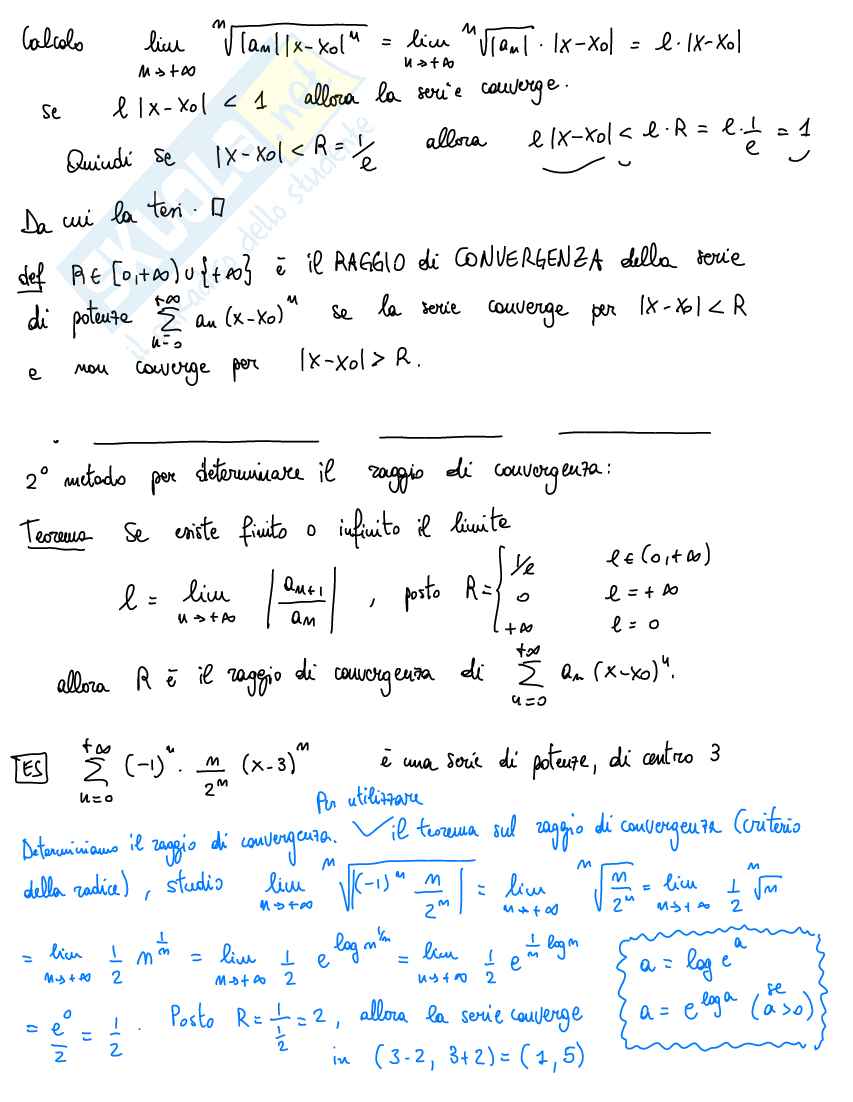 Calcolo lim n→+∞ ⁿ√(|aₙ||x-x₀|ⁿ) = lim n→+∞ ⁿ√|aₙ| · |x-x₀| = l·|x-x₀|
se l|x-x₀| < 1 allora la serie converge.
Quindi se |x-x₀| < R = 1/l allora l|x-x₀| < l·R = l·1/l = 1
Da cui la tesi. □
def R∈[0,+∞)∪{+∞} è il RAGGIO di CONVERGENZA della serie
di potenze Σ n=0 +∞ aₙ(x-x₀)ⁿ se la serie converge per |x-x₀|<R
e non converge per |x-x₀|>R.
2° metodo per determinare il raggio di convergenza:
Teorema Se esiste finito o infinito il limite
l = lim n→+∞ |aₙ₊₁/aₙ| , posto R = { 1/l l∈(0,+∞)
0 l=+∞
+∞ l=0
allora R è il raggio di convergenza di Σ n=0 +∞ aₙ(x-x₀)ⁿ.
ES Σ n=0 +∞ (-1)ⁿ · n/2ⁿ (x-3)ⁿ è una serie di potenze, di centro 3
Per utilizzare
Determiniamo il raggio di convergenza. ✓ il teorema sul raggio di convergenza (criterio
della radice), studio lim n→+∞ ⁿ√|(-1)ⁿ n/2ⁿ| = lim n→+∞ ⁿ√(n/2ⁿ) = lim n→+∞ 1/2 ⁿ√n
= lim n→+∞ 1/2 n^(1/n) = lim n→+∞ 1/2 e^(log n^(1/n)) = lim n→+∞ 1/2 e^(1/n log n)
a = log eᵃ
a = e^(log a) (se a>0)
= e⁰/2 = 1/2. Posto R = 1/(1/2) = 2, allora la serie converge
in (3-2, 3+2) = (1,5)
SKUOLA.net
il paradiso dello studente